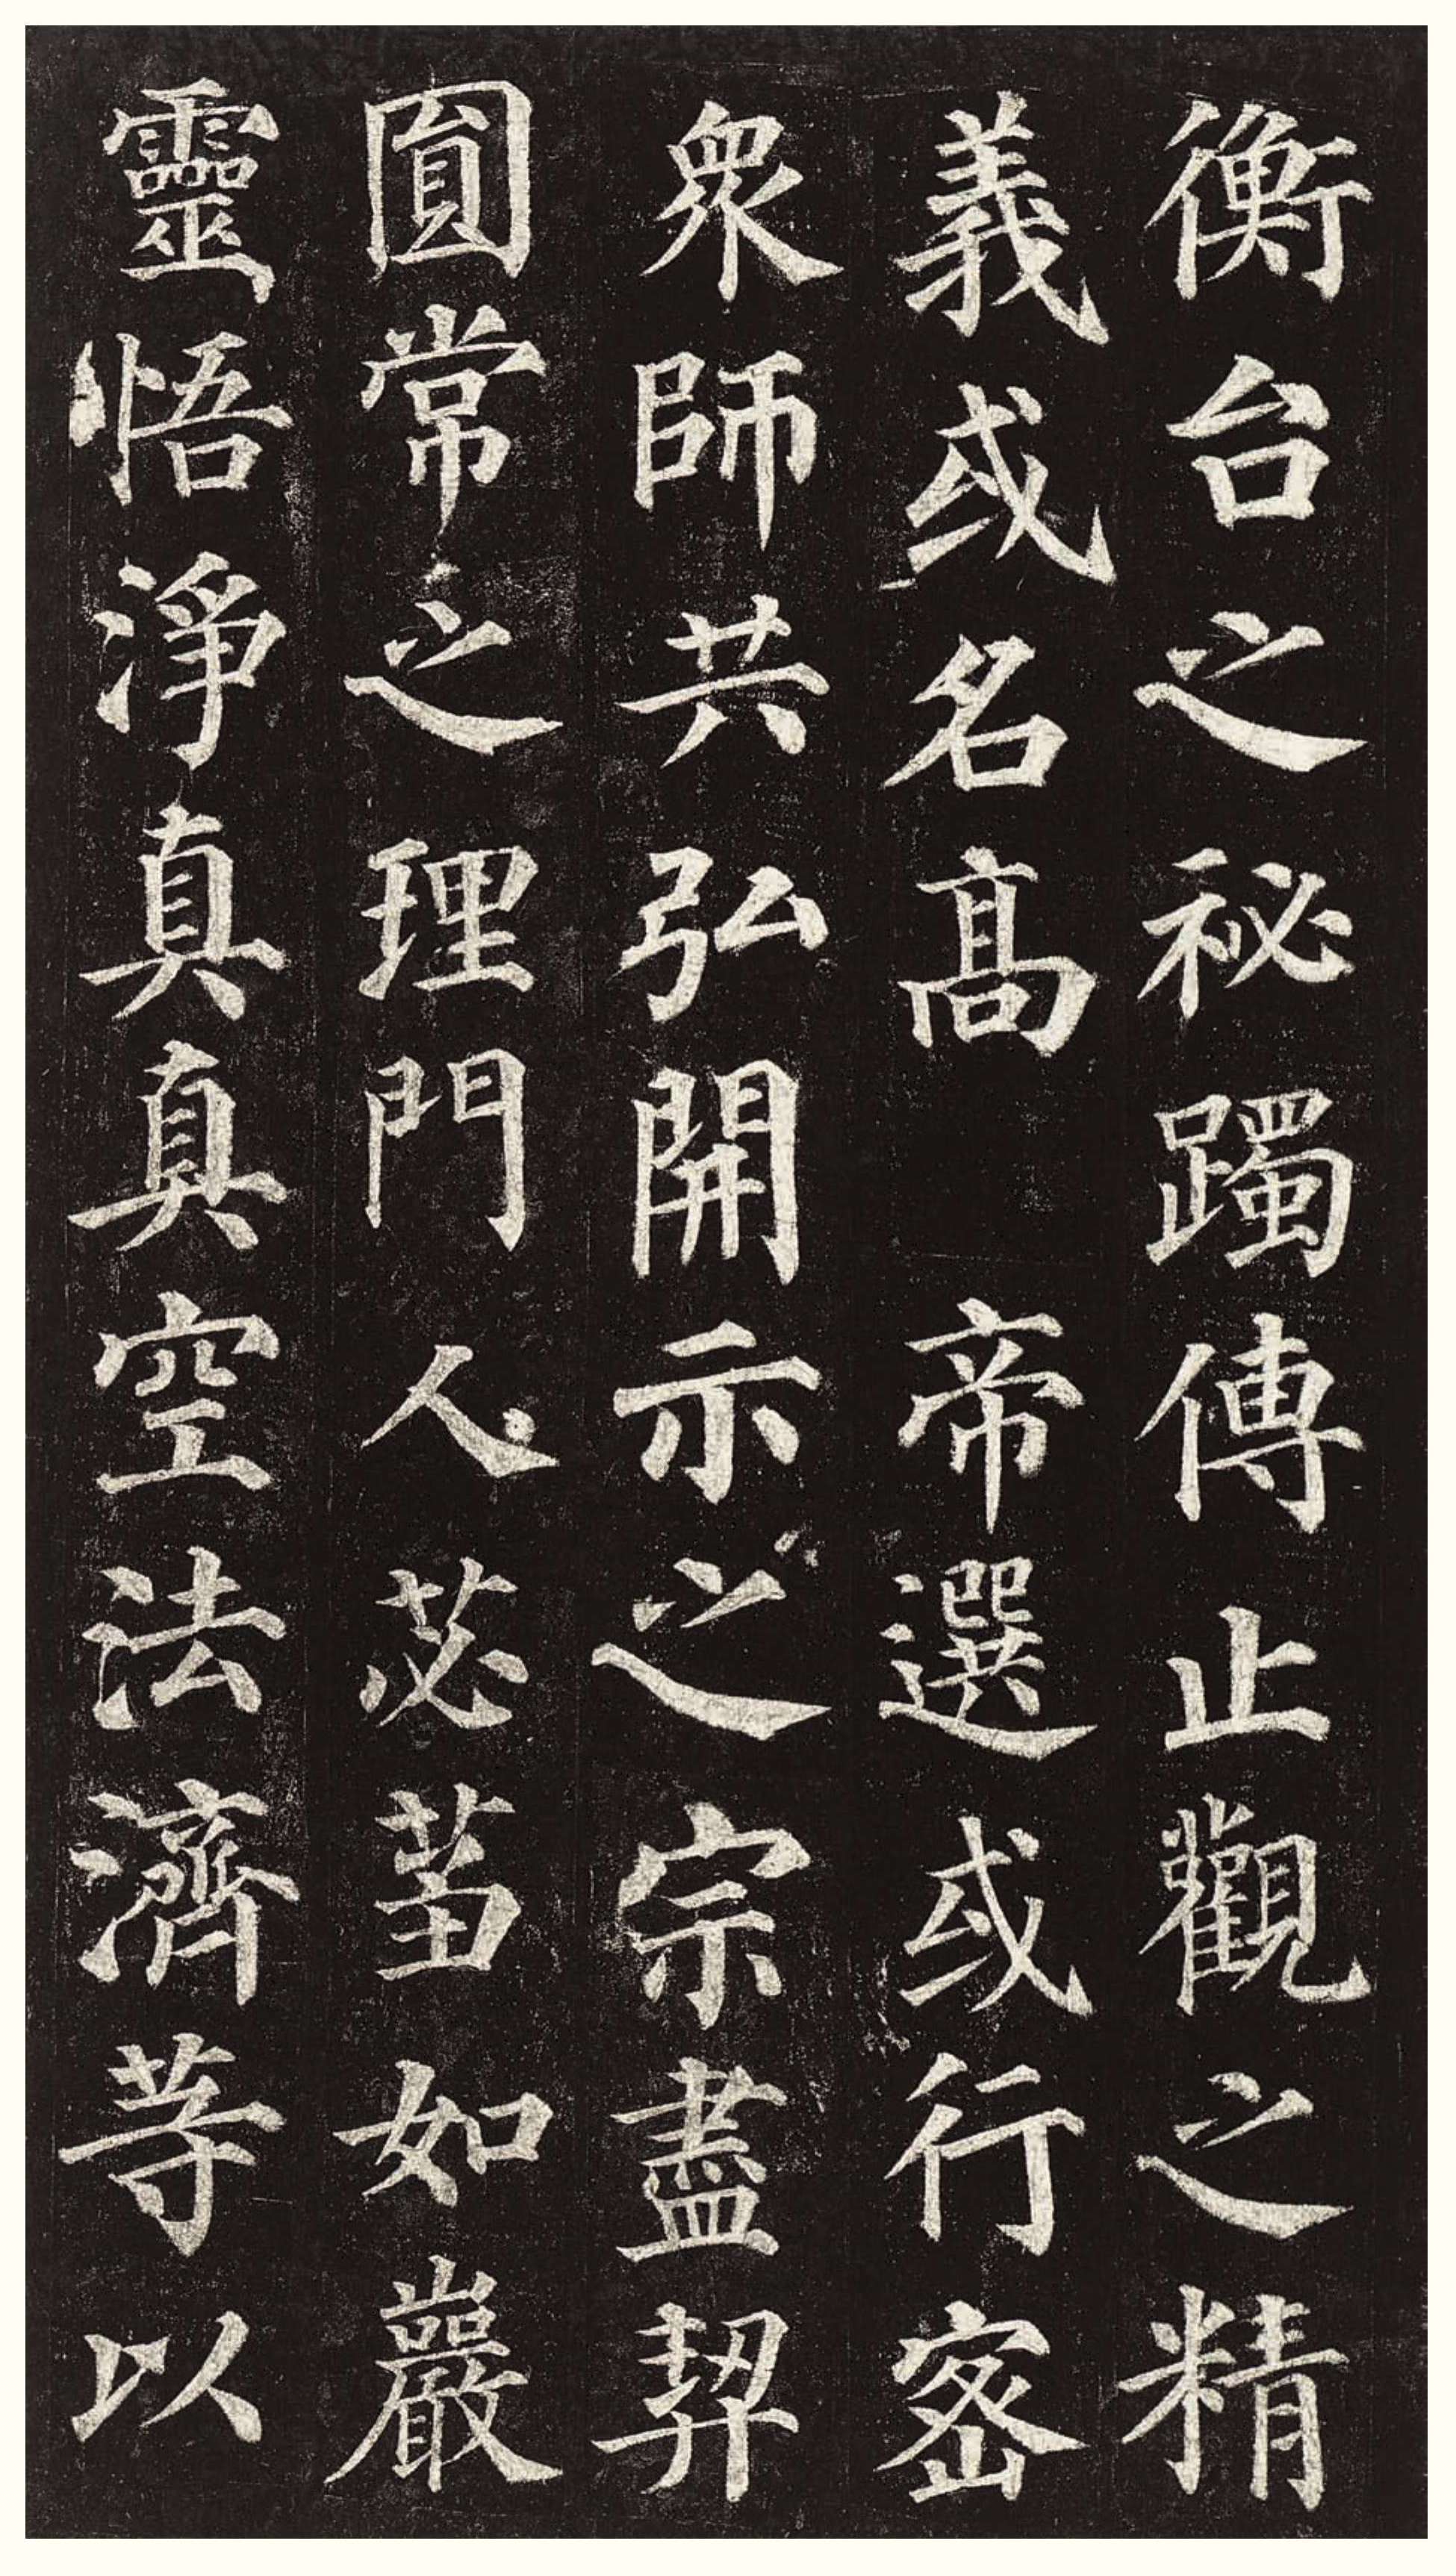 衡台之秘躅傳止觀之精
義或名高　帝選或行密
衆師共弘開示之宗盡契
圓常之理門人苾蒭如巖
靈悟淨真真空法濟等以